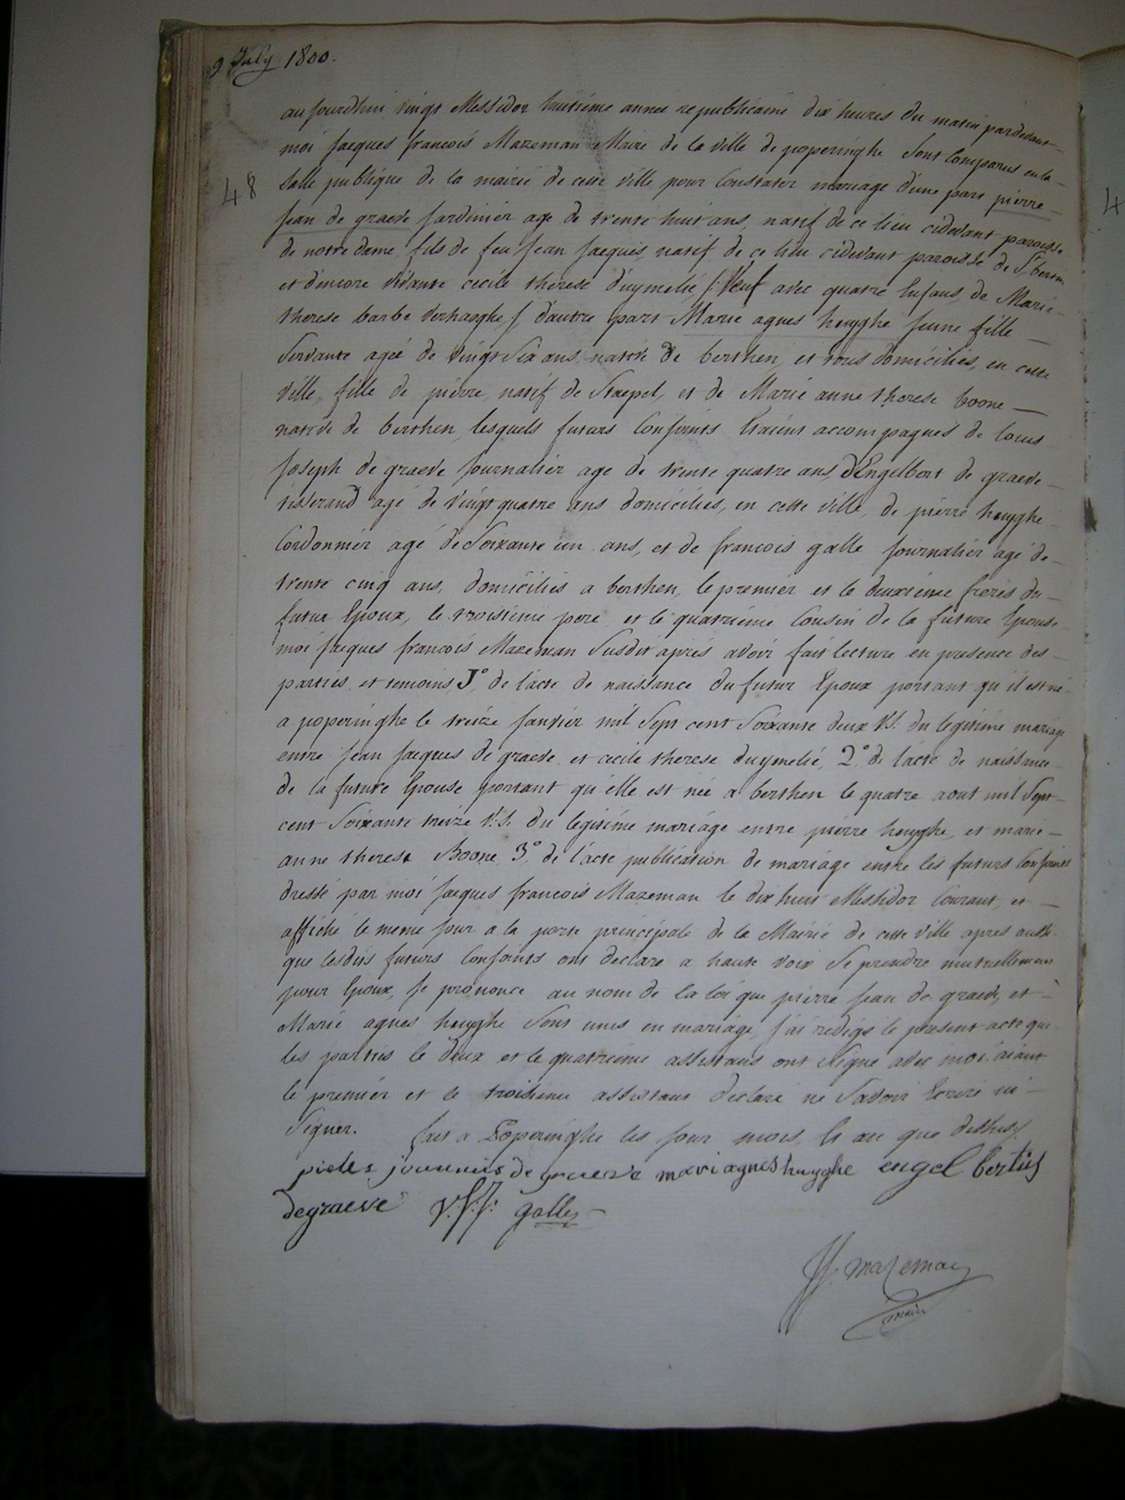 9 July 1800.
aujourdhui vingt Messidor huitieme annee republicaine dix heures du matin pardevant
moi jacques francois Mazeman Maire de la ville de poperinghe sont comparus en la
48
salle publique de la mairie de cette ville pour constater mariage d'une part pierre
jean de graeve jardinier age de trente huit ans, natif de ce lieu cidevant paroisse
de notre dame, fils de feu jean jacques, natif de ce lieu cidevant paroisse de St bertin
et d'encore vivante cecile therese duymelie / Veuf avec quatre enfans, de Marie
therese barbe verhaeghe / d'autre part Marie agnes huyghe jeune fille
servante agée de vingt six ans native de berthen, et tous domiciliés, en cette
ville, fille de pierre, natif de Staepel, et de Marie anne therese boone
native de berthen, lesquels futurs conjoints etaient accompagnes de louis
joseph de graeve journalier age de trente quatre ans, d'Engelbert de graeve
tisserand agé de vingt quatre ans domiciliés, en cette ville, de pierre huyghe
cordonnier agé de soixante un ans, et de francois galle journalier agé de
trente cinq ans, domiciliés a berthen, le premier et le deuxieme freres du
futur epoux, le troisieme pere et le quatrieme cousin de la future epouse
moi jacques francois Mazeman susdit après avoir fait lecture en presence des
parties et temoins 1° de l'acte de naissance du futur epoux portant qu'il est né
a poperinghe le treize janvier mil sept cent soixante deux v.s. du legitime mariage
entre jean jacques de graeve, et cecile therese duymelié, 2° de l'acte de naissance
de la future epouse portant qu'elle est née a berthen le quatre aout mil sept
cent soixante treize v.s. du legitime mariage entre pierre huyghe, et marie
anne therese Boone, 3° de l'acte publication de mariage entre les futurs conjoints
dressé par moi jacques francois Mazeman le dix huit Messidor courant, et
affiché le meme jour a la porte principale de la Mairie de cette ville apres aussi
que lesdits futurs conjoints ont declare a haute voix se prendre mutuellement
pour epoux, je prononce au nom de la loi que pierre jean de graeve, et
Marie agnes huyghe sont unis en mariage, j'ai redigé le present acte que
les parties le deux et le quatrieme assistans ont signé avec moi, aiant
le premier et le troisieme assistans declare ne savoir ecrire ni
signer. fait a Poperinghe les jour mois, et an que dessus
pieter joannes de graeve mari agnes huyghe engelbertus
degraeve galle
J f. mazeman
maire